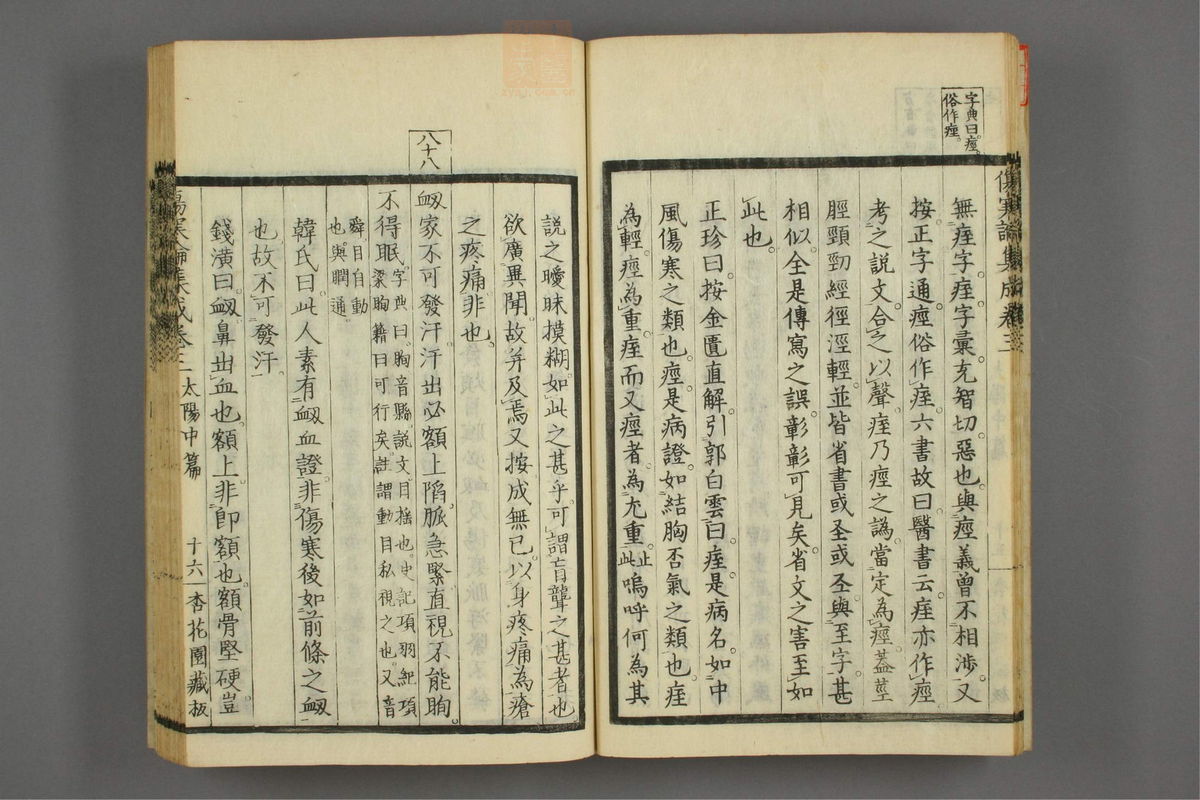 字典曰痙
俗作痓
傷寒論集成卷三
無痓字痓字彙充智切惡也與痙義曾不相涉又
按正字通痙俗作痓六書故曰醫書云痓亦作痙
考之說文合之以聲痓乃痙之譌當定為痙蓋莖
脛頸勁經徑涇輕並皆省書或圣或圣與至字甚
相似全是傳寫之誤彰彰可見矣省文之害至如
此也
正珍曰按金匱直解引郭白雲曰痓是病名如中
風傷寒之類也痙是病證如結胸否氣之類也痓
為輕痙為重痓而又痙者為尤重止此嗚呼何為其
說之曖昧摸糊如此之甚乎可謂盲聾之甚者也
欲廣異聞故并及焉又按成無已以身疼痛為瘡
之疼痛非也
八十八
衂家不可發汗汗出必額上陷脈急緊直視不能眴
不得眠字典曰眴音縣說文目搖也史記項羽紀項
梁眴籍曰可行矣註謂動目私視之也又音
舜目自動
也與瞤通
韓氏曰此人素有衂血證非傷寒後如前條之衂
也故不可發汗
錢潢曰衂鼻出血也額上非即額也額骨堅硬豈
傷寒論集成卷三 太陽中篇 十六 杏花園藏板